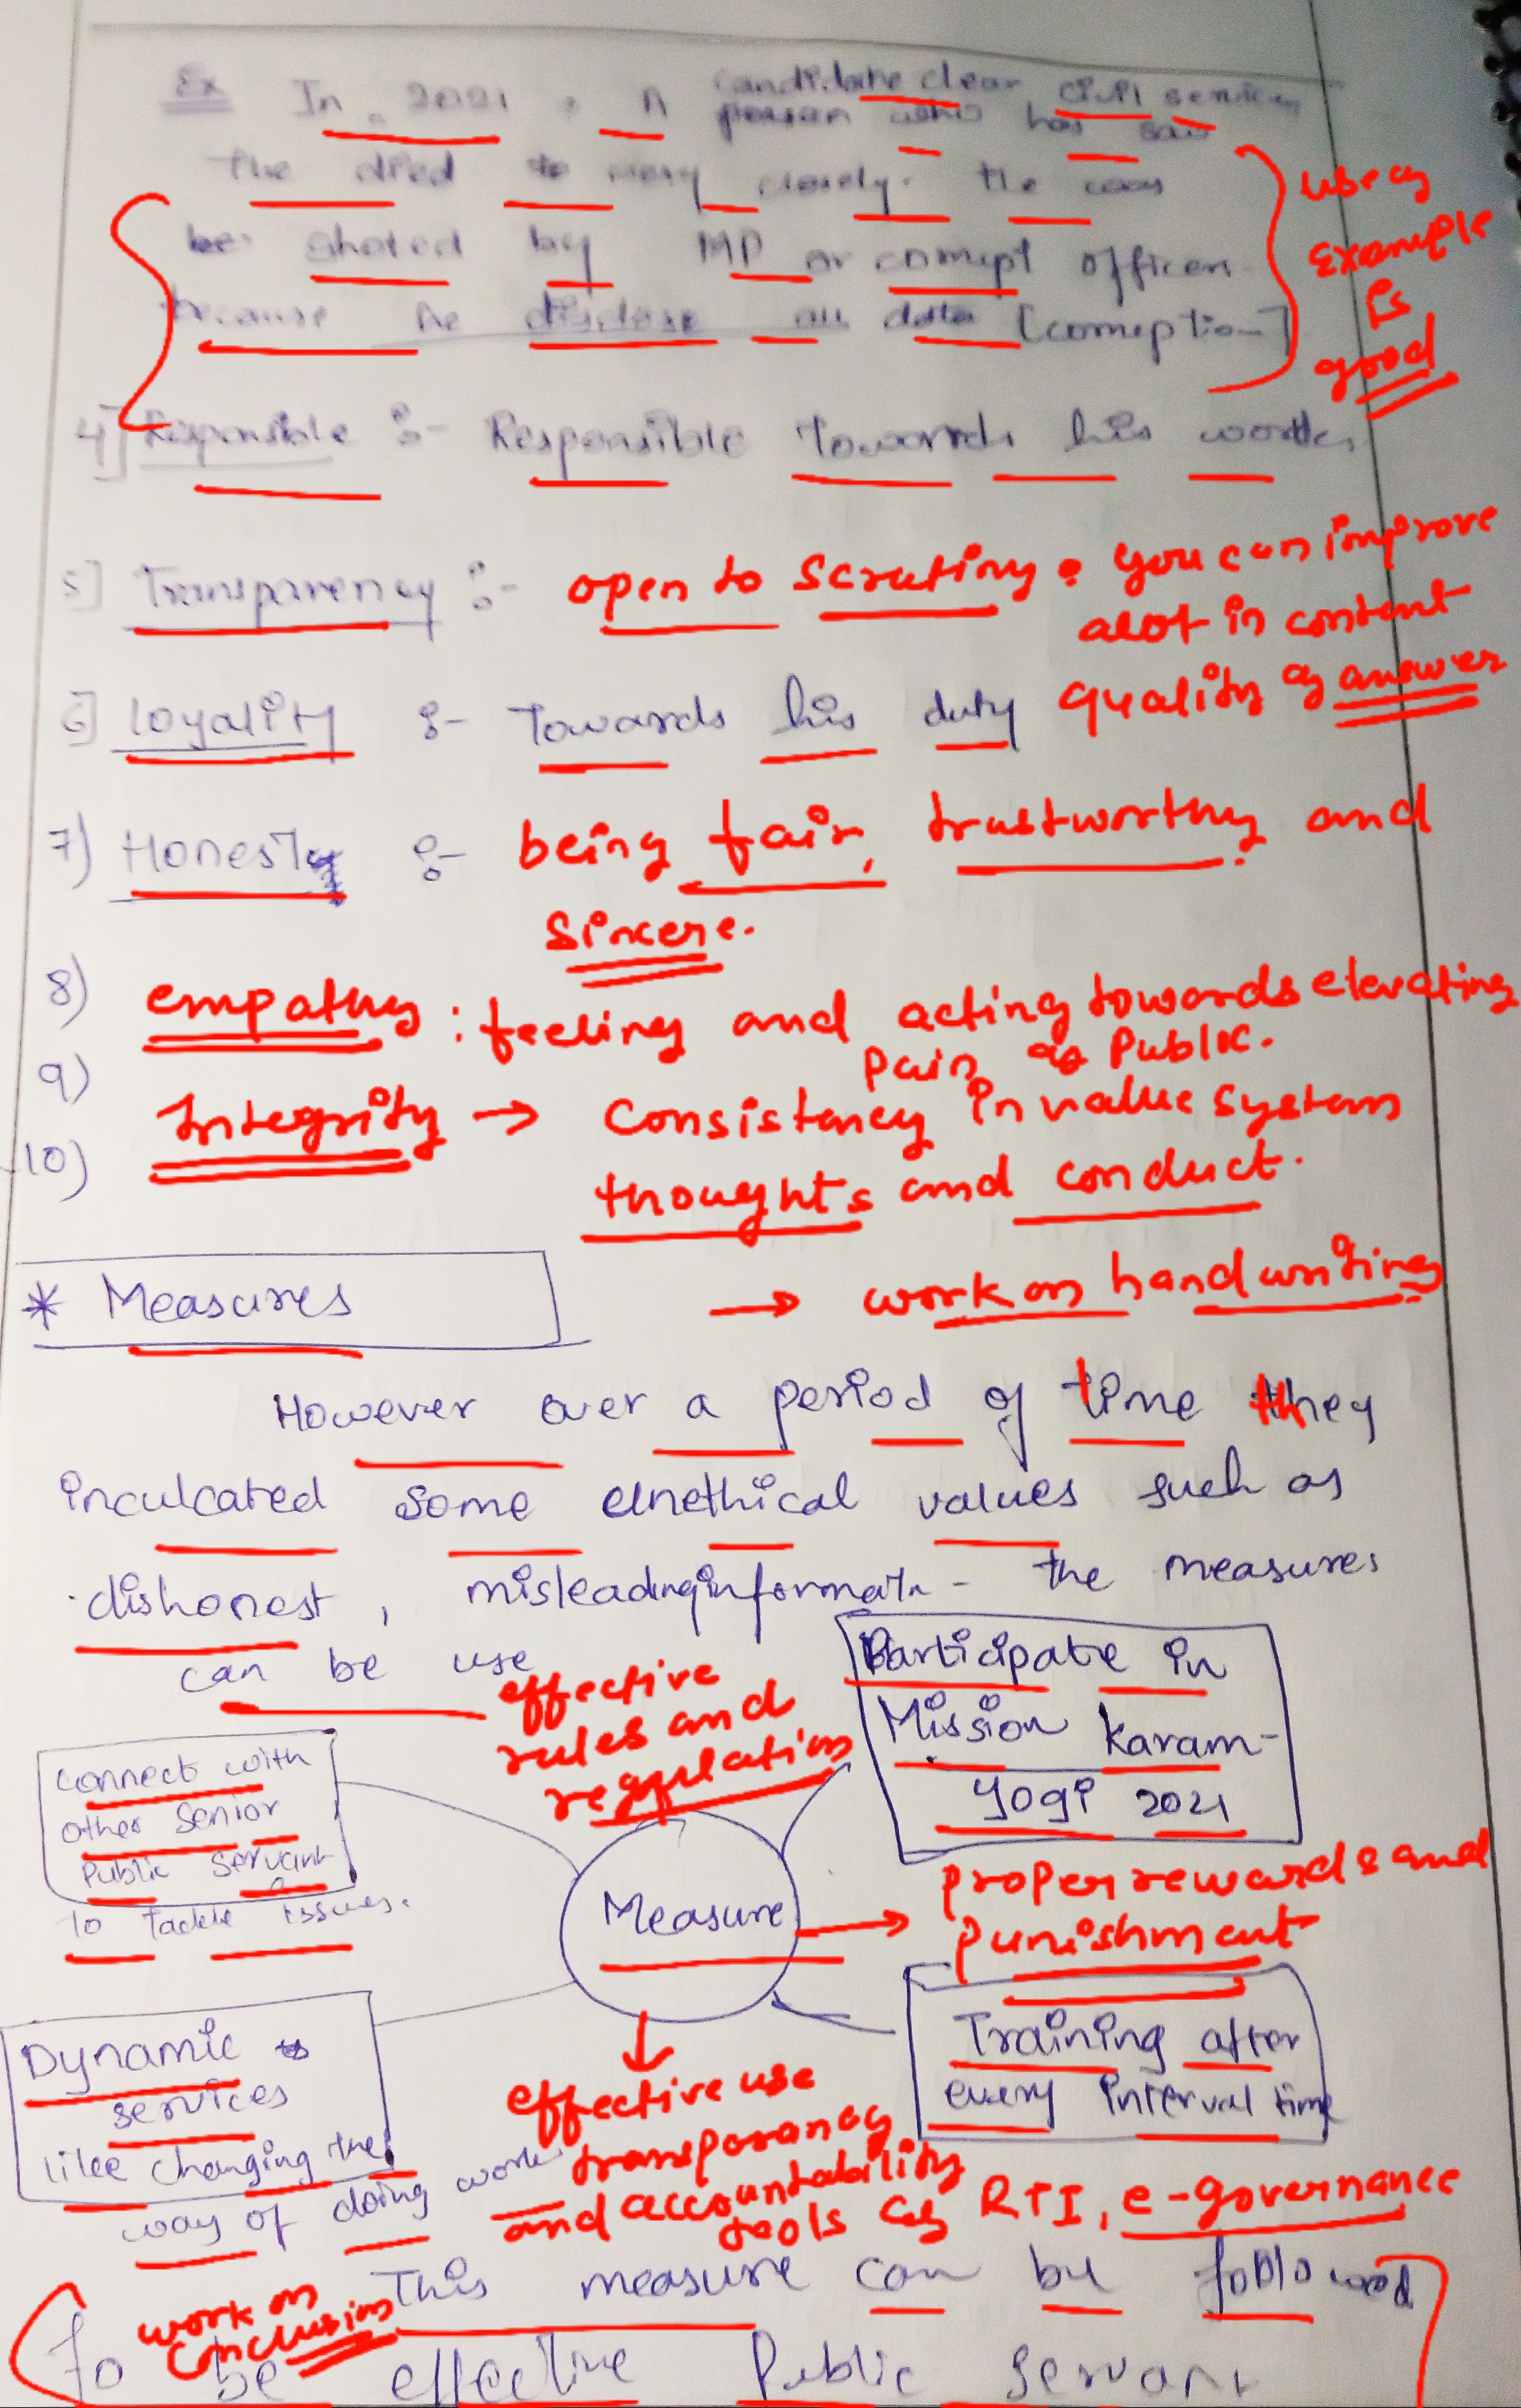 Ex In 2021, A candidate clear civil services
person who has saw
the died to very closely. the was
be shoted by MP or corrupt officer
because he disclose all data [corruption]
use of
example
is
good
4] Responsible :- Responsible Towards his works
5] Transparency :- open to scrutiny. you can improve
alot in content
quality of answer
6] Loyality :- Towards his duty
7) Honesty :- being fair, trustworthy and
sincere.
8) empathy : feeling and acting towards elevating
pain of Public.
9)
Integrity → Consistancy in value system
10)
thoughts and conduct.
→ work on handwriting
* Measures
However over a period of time they
inculcated some unethical values such as
dishonest, misleading informatn - the measures
can be use
effective
rules and
regulation
Participate in
Mission Karam-
yogi 2021
Connect with
other senior
Public servant
to tackle issues.
Measure
proper rewards and
punishment
Training after
every interval time
Dynamic
services
like changing the
way of doing work
effective use
transparancy
and accountability
tools eg RTI, e-governance
This measure can be followed
work on
conclusion
To be effective Public servant